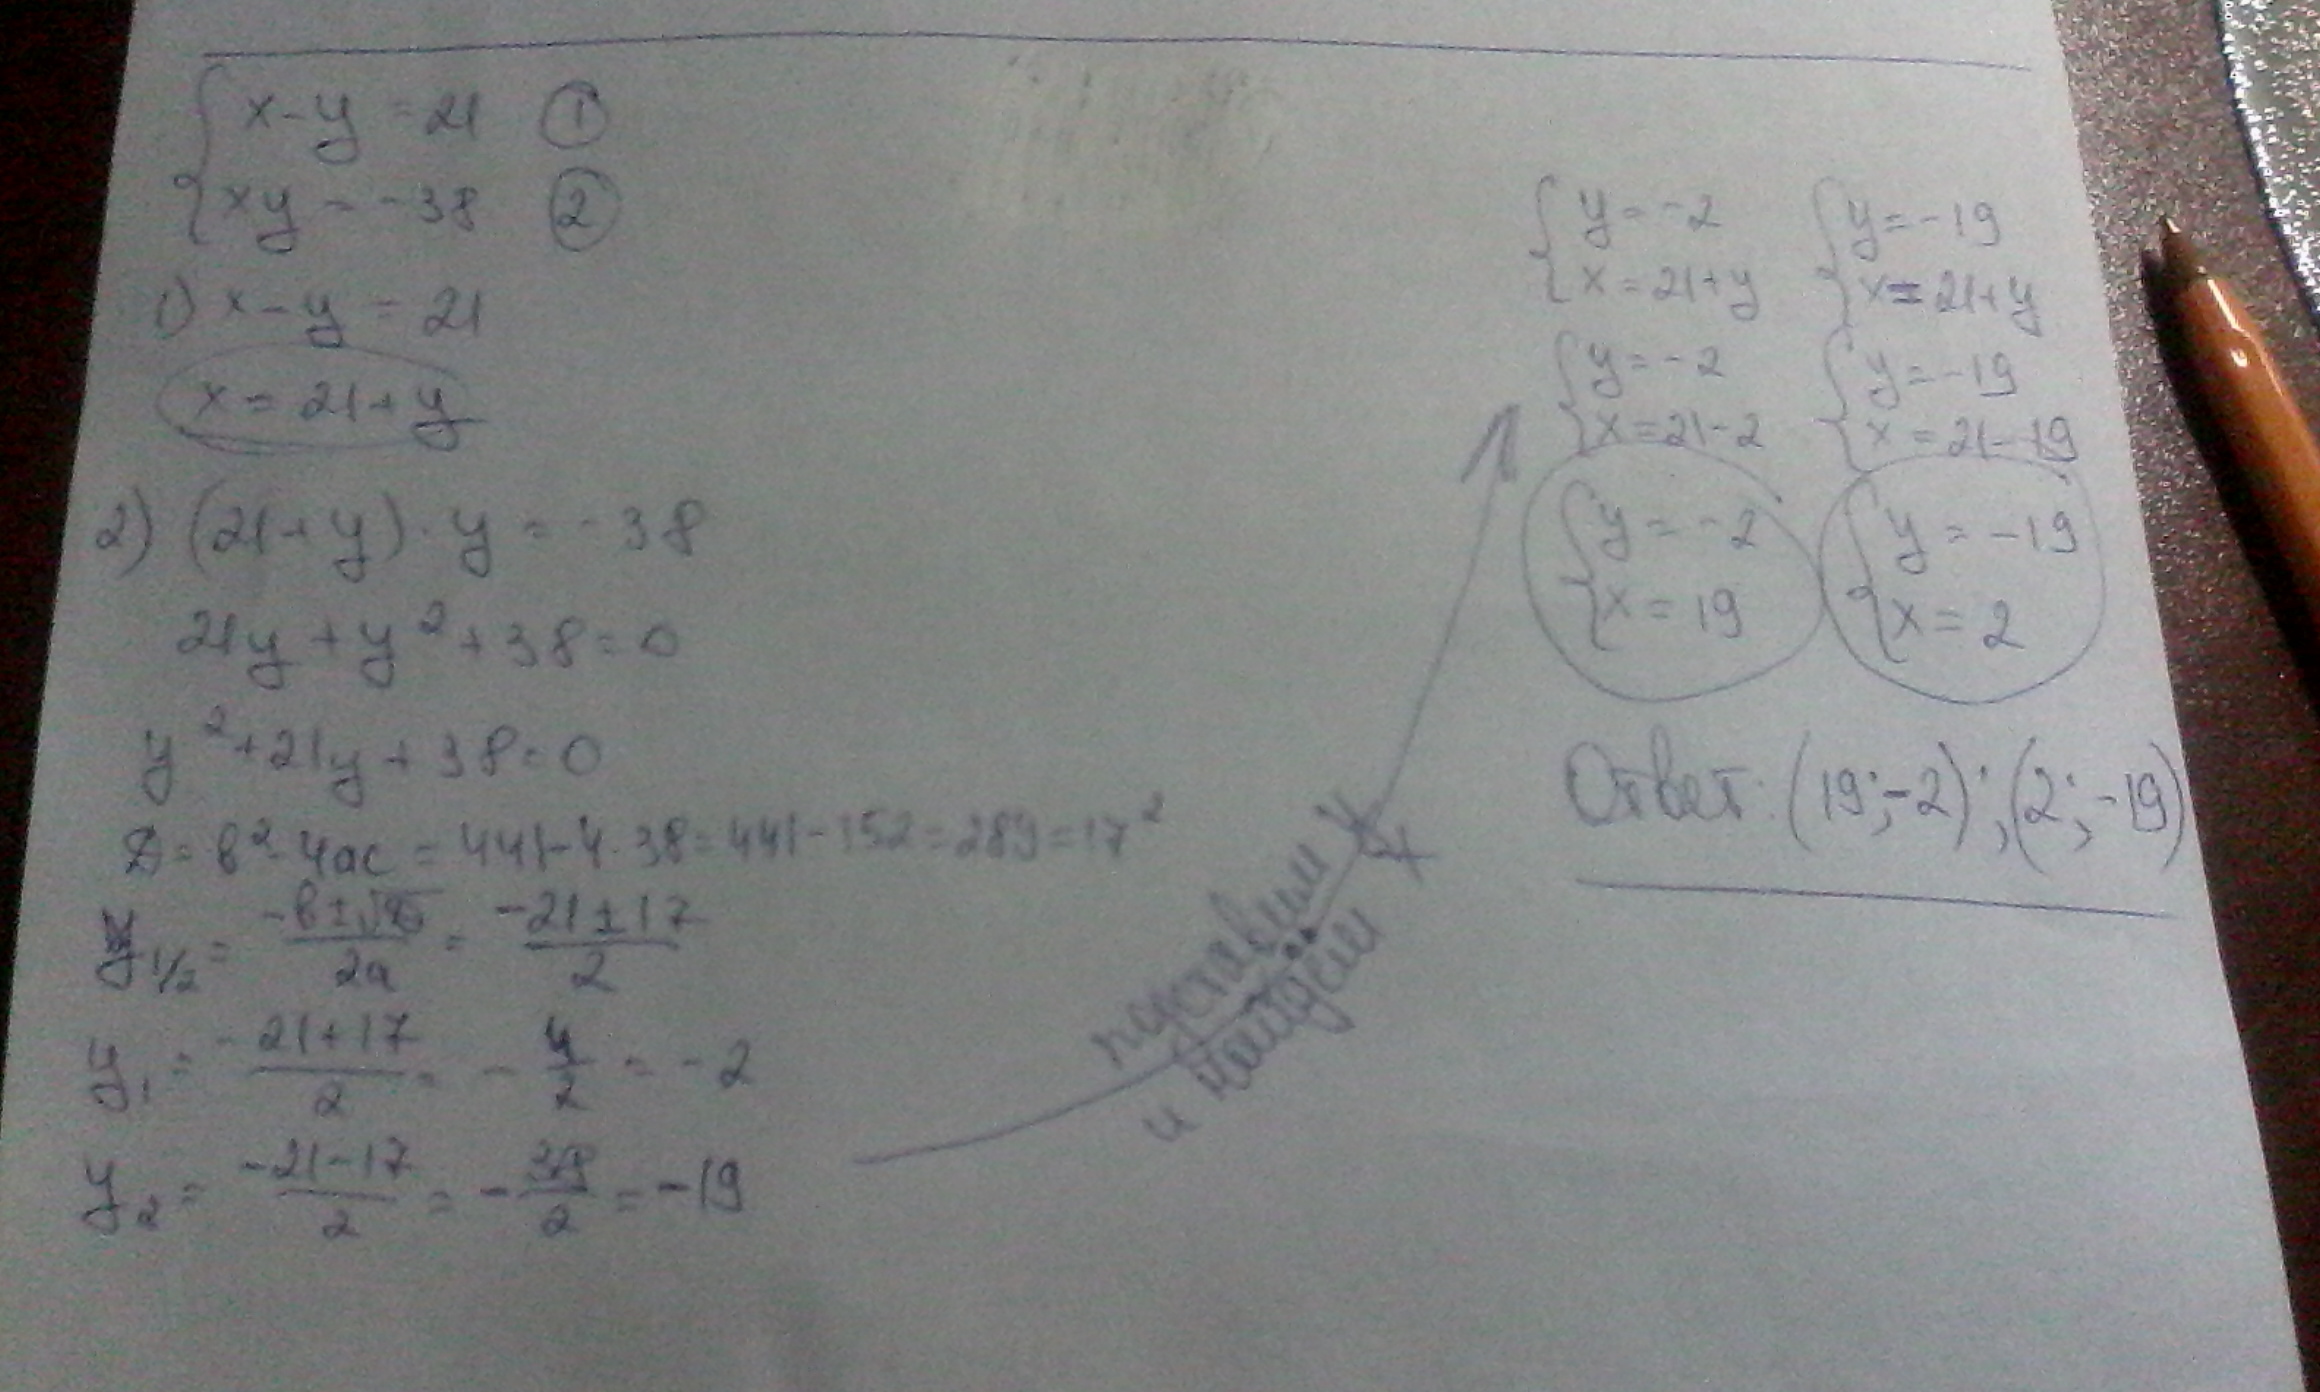 { x - y = 21 ①
{ xy = -38 ②
1) x - y = 21
x = 21 + y
2) (21 + y) · y = -38
21y + y² + 38 = 0
y² + 21y + 38 = 0
D = b² - 4ac = 441 - 4 · 38 = 441 - 152 = 289 = 17²
y1/2 = (-b ± √D)/2a = (-21 ± 17)/2
y1 = (-21 + 17)/2 = -4/2 = -2
y2 = (-21 - 17)/2 = -38/2 = -19
подставим y
и найдём x
{ y = -2
{ x = 21 + y
{ y = -2
{ x = 21 - 2
{ y = -2
{ x = 19
{ y = -19
{ x = 21 + y
{ y = -19
{ x = 21 - 19
{ y = -19
{ x = 2
Ответ: (19; -2); (2; -19)